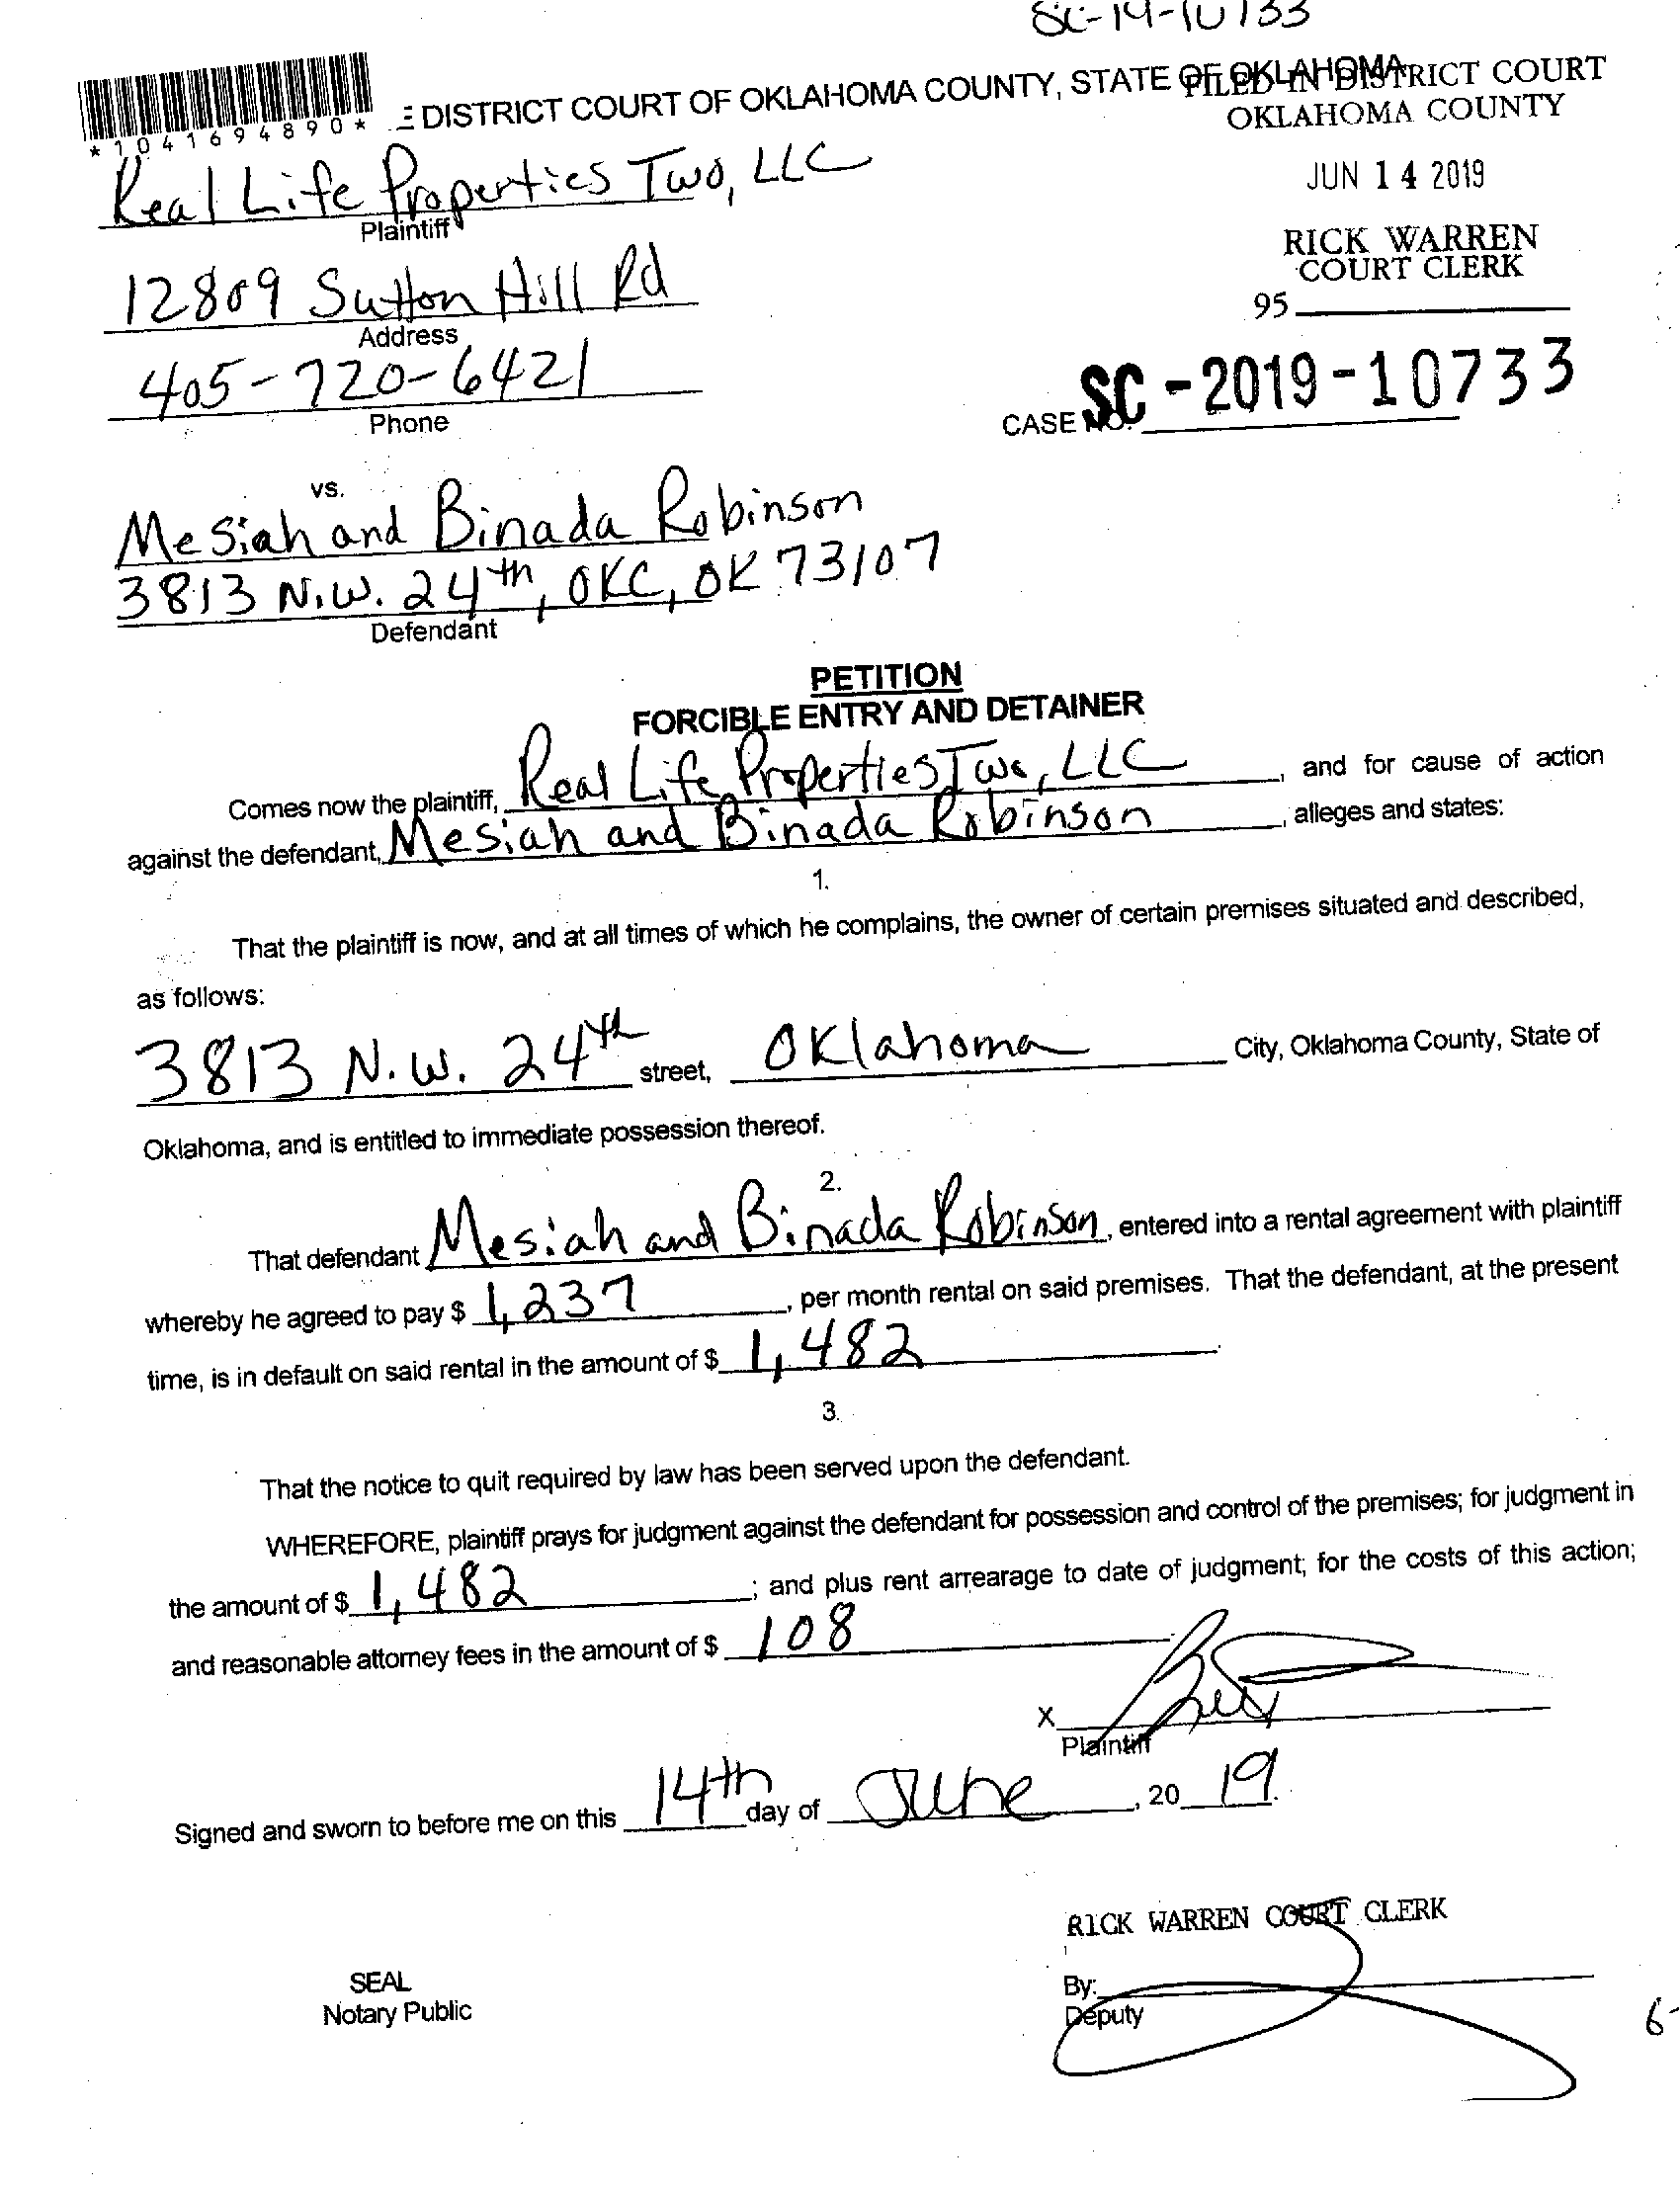 SC-19-10733
*1041694890*
E DISTRICT COURT OF OKLAHOMA COUNTY, STATE OF OKLAHOMA
FILED IN DISTRICT COURT
OKLAHOMA COUNTY
JUN 14 2019
RICK WARREN
COURT CLERK
95
Real Life Properties Two, LLC
Plaintiff
12809 Sutton Hill Rd
Address
405-720-6421
Phone
CASE NO. SC-2019-10733
vs.
Mesiah and Binada Robinson
3813 N.W. 24th, OKC, OK 73107
Defendant
PETITION
FORCIBLE ENTRY AND DETAINER
Comes now the plaintiff, Real Life Properties Two, LLC, and for cause of action
against the defendant, Mesiah and Binada Robinson, alleges and states:
1.
That the plaintiff is now, and at all times of which he complains, the owner of certain premises situated and described,
as follows:
3813 N.W. 24th street, Oklahoma City, Oklahoma County, State of
Oklahoma, and is entitled to immediate possession thereof.
2.
That defendant Mesiah and Binada Robinson, entered into a rental agreement with plaintiff
whereby he agreed to pay $ 1,237, per month rental on said premises. That the defendant, at the present
time, is in default on said rental in the amount of $ 1,482.
3.
That the notice to quit required by law has been served upon the defendant.
WHEREFORE, plaintiff prays for judgment against the defendant for possession and control of the premises; for judgment in
the amount of $ 1,482; and plus rent arrearage to date of judgment; for the costs of this action;
and reasonable attorney fees in the amount of $ 108
X
Plaintiff
Signed and sworn to before me on this 14th day of June, 20 19.
RICK WARREN COURT CLERK
SEAL
Notary Public
By:
Deputy
6-